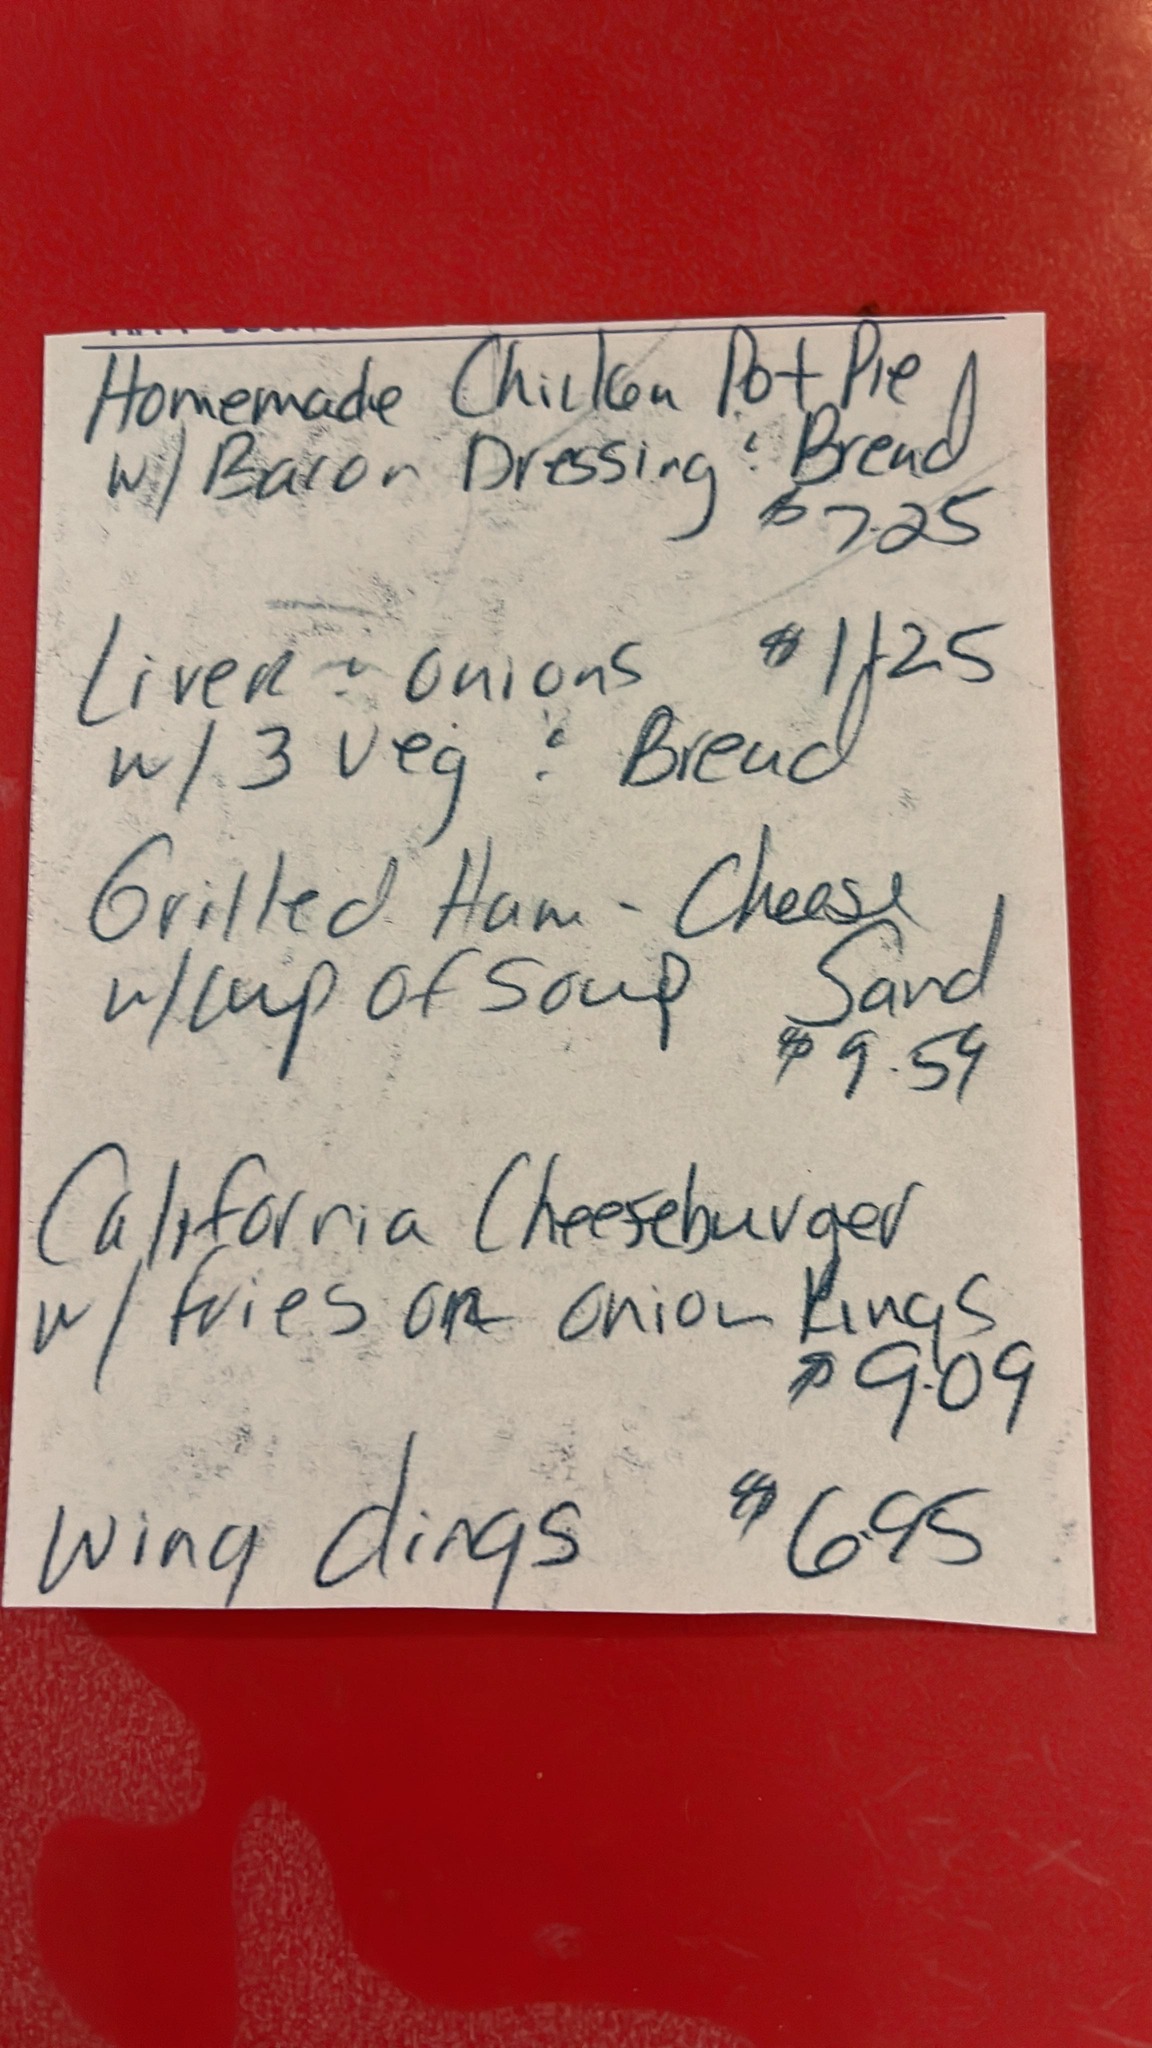 Homemade Chicken Pot Pie
w/ Bacon Dressing & Bread
$7.25
Liver & onions $11.25
w/ 3 veg & Bread
Grilled Ham - Cheese
w/cup of soup Sand
$9.59
California Cheeseburger
w/ fries or onion Rings
$9.09
wing dings $6.95